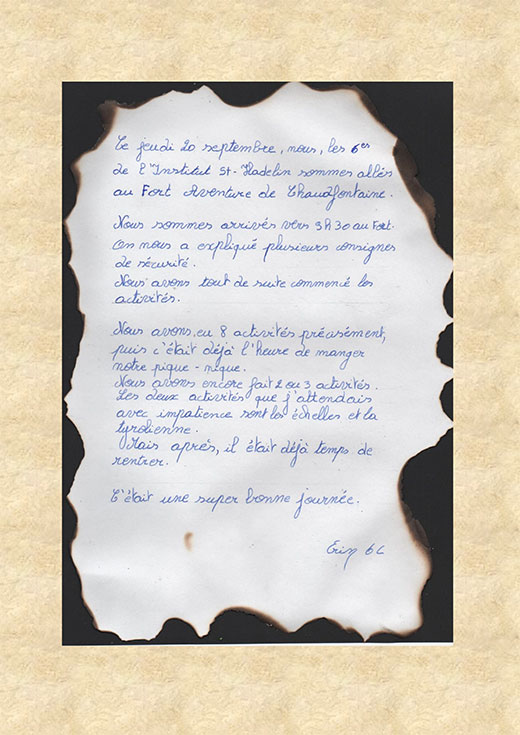 Ce jeudi 20 septembre, nous, les 6es
de l'Institut St-Hadelin sommes allés
au Fort Aventure de Chaudfontaine.
Nous sommes arrivés vers 9h30 au Fort.
On nous a expliqué plusieurs consignes
de sécurité.
Nous avons tout de suite commencé les
activités.
Nous avons eu 8 activités précisément,
puis c'était déjà l'heure de manger
notre pique-nique.
Nous avons encore fait 2 ou 3 activités.
Les deux activités que j'attendais
avec impatience sont les échelles et la
tyrolienne.
Mais après, il était déjà temps de
rentrer.
C'était une super bonne journée.
Erin 6C